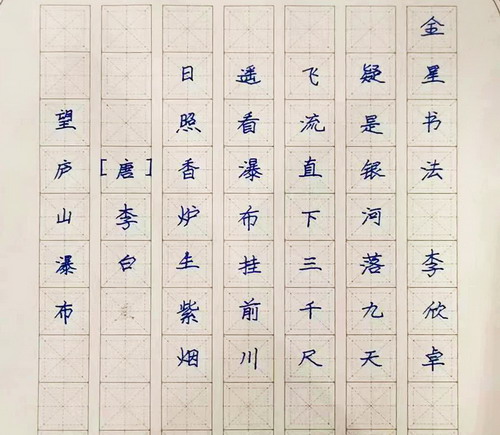 望庐山瀑布
[唐]李白
日照香炉生紫烟
遥看瀑布挂前川
飞流直下三千尺
疑是银河落九天
金星书法 李欣卓